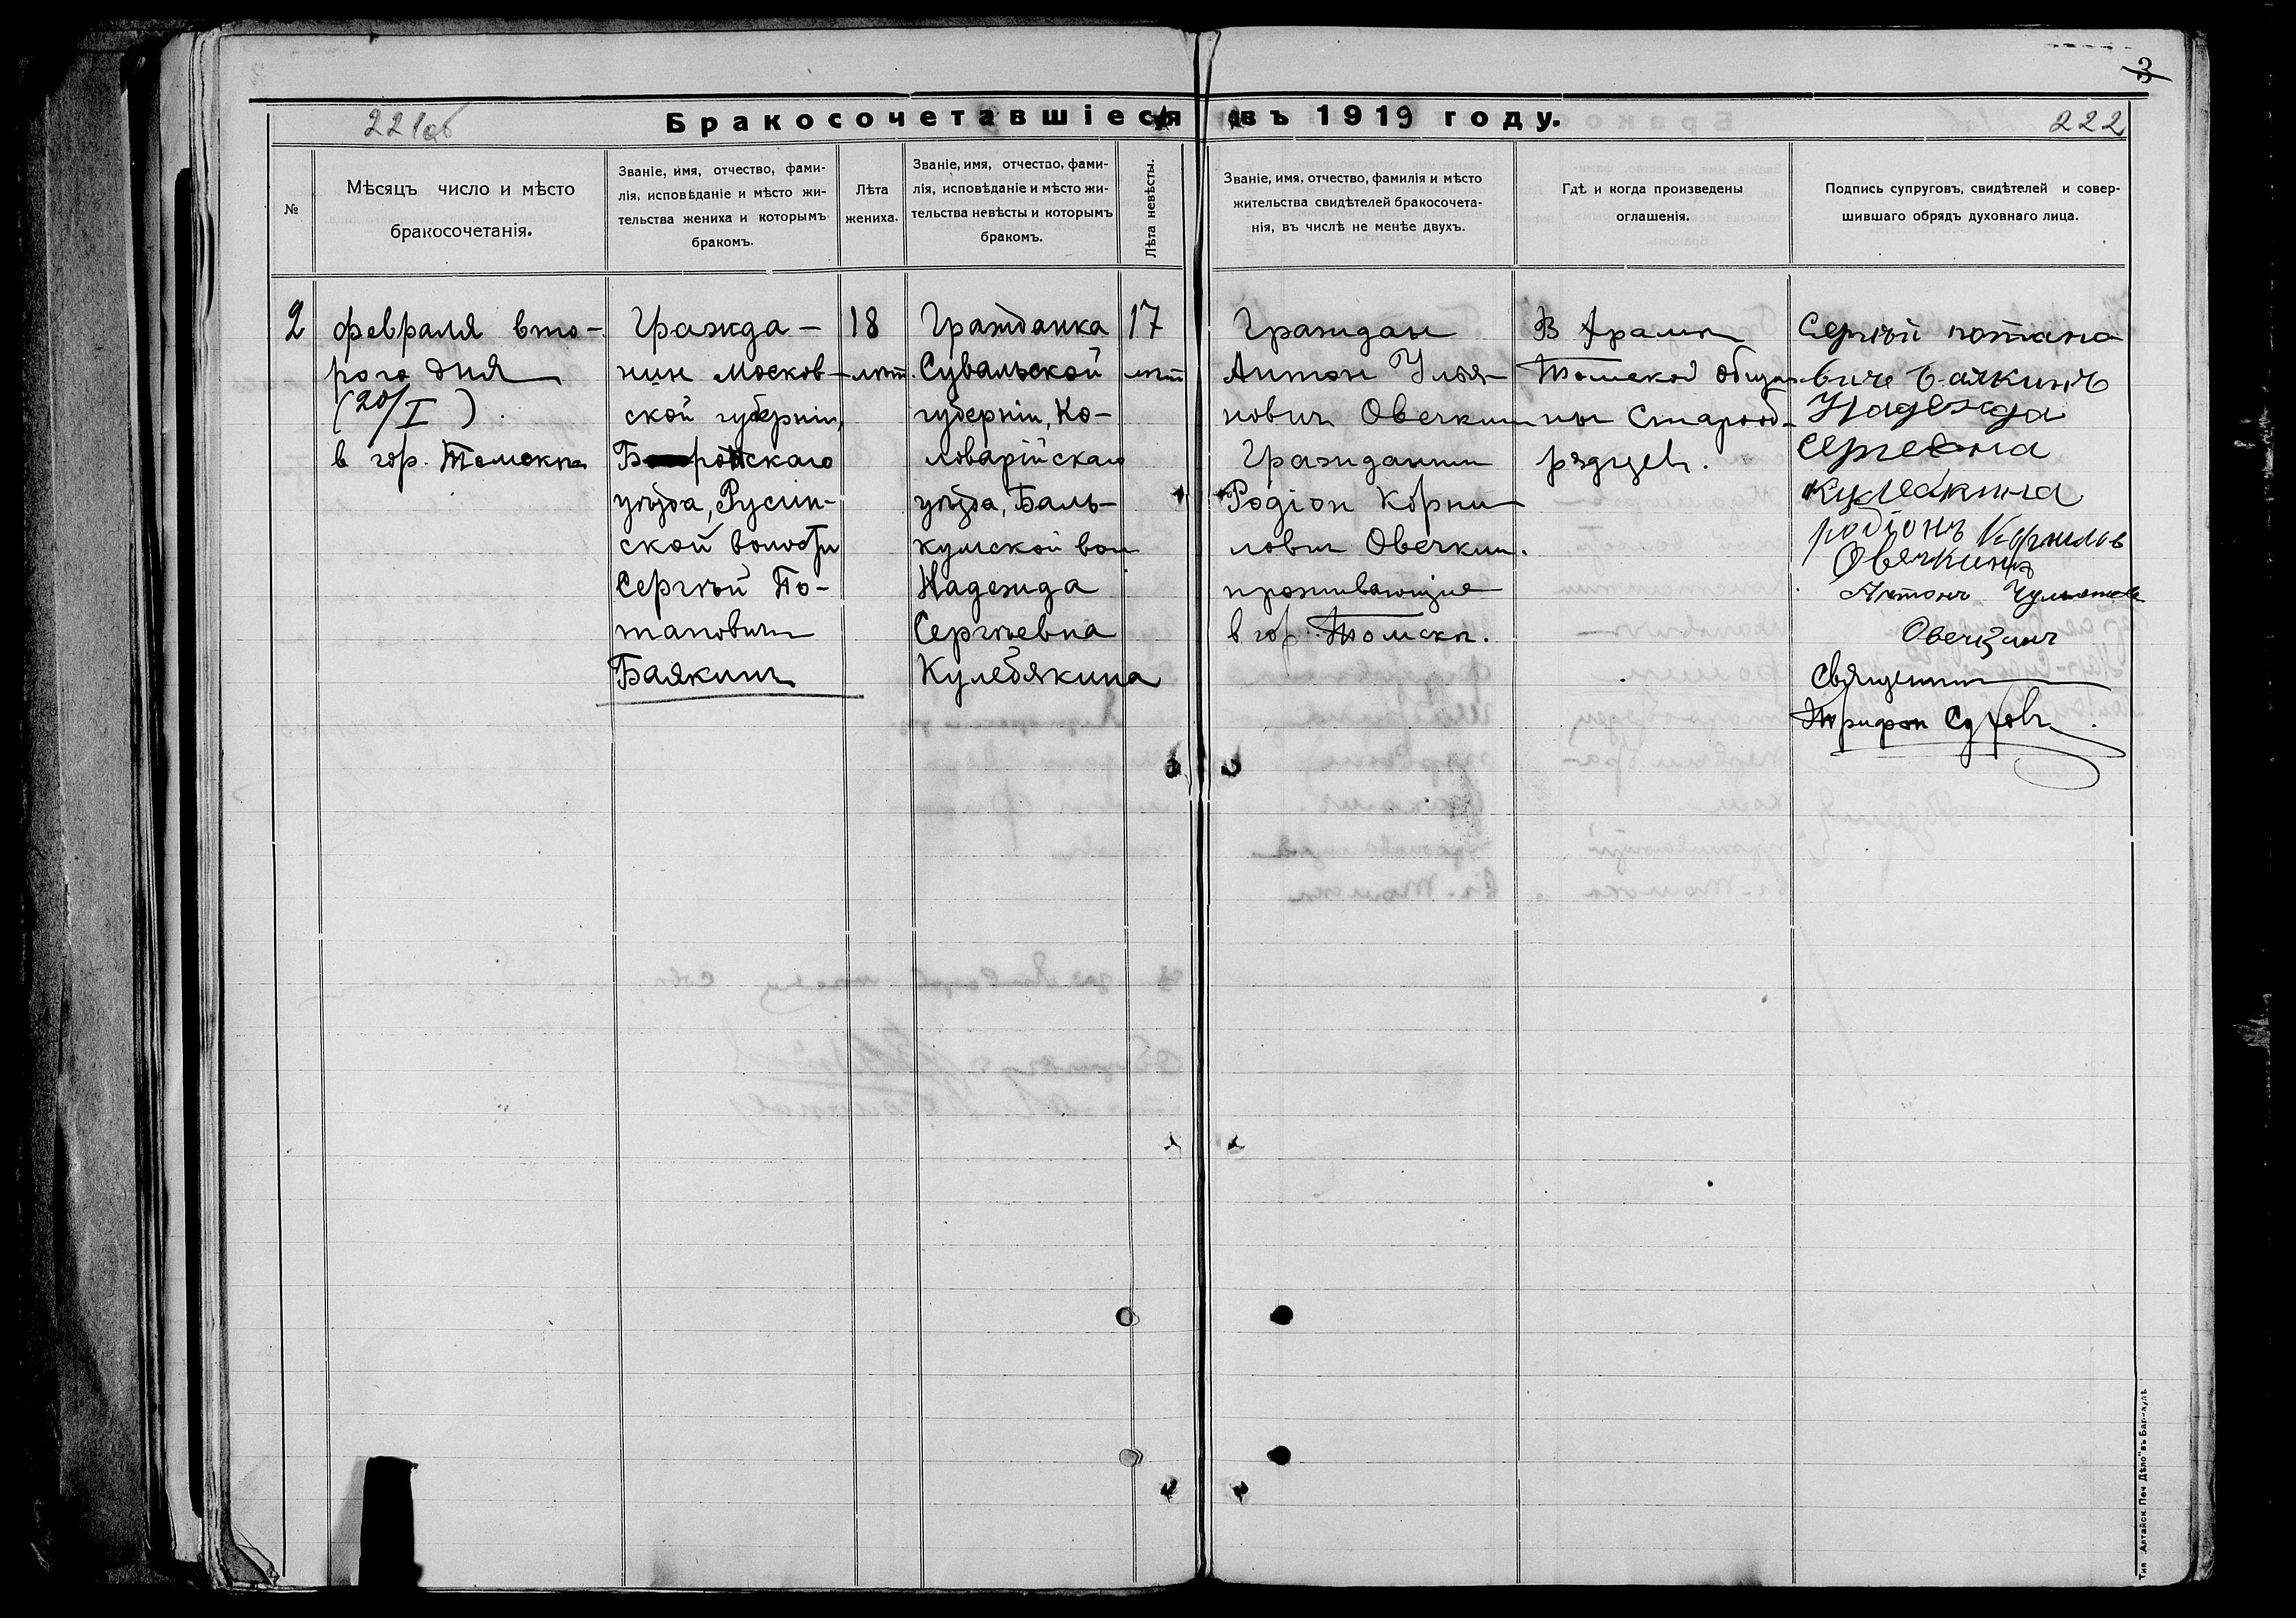 3
221об
Бракосочетавшіеся въ 1919 году.
222
№
Мѣсяцъ число и мѣсто
бракосочетанія.
Званіе, имя, отчество, фами-
лія, исповѣданіе и мѣсто жи-
тельства жениха и которымъ
бракомъ.
Лѣта
жениха.
Званіе, имя, отчество, фами-
лія, исповѣданіе и мѣсто жи-
тельства невѣсты и которымъ
бракомъ.
Лѣта невѣсты.
Званіе, имя, отчество, фамилія и мѣсто
жительства свидѣтелей бракосочета-
нія, въ числѣ не менѣе двухъ.
Гдѣ и когда произведены
оглашенія.
Подпись супруговъ, свидѣтелей и совер-
шившаго обрядъ духовнаго лица.
2
февраля вто-
рого дня
(20/I).
в гор. Томскѣ
Гражда-
нин Москов-
ской губерніи,
уѣзда, Русин-
ской волости
Сергѣй По-
тапович
Баякин
18
лѣт.
Гражданка
Сувальской
губерніи, Ко-
ловарійскаго
уѣзда, Баль-
кумской вол
Надежда
Сергѣевна
Кулебякина
17
лѣт
Граждан
Антон Улья-
нович Овечкин
Гражданин
Родіон Корни-
лович Овечкин.
проживающие
в гор. Томскѣ.
В Храмѣ
Томской общи-
ны Старооб-
рядцев.
Сергѣй потапо
виче Баякинъ
Надежда
Сергевна
Кулебакина
родіонъ Корнилов
Овечкинъ
Антонъ
Овечкинъ
Священник
Трифон Сухов
Тип. „Алтайск. Печ. Дѣло" въ Барнаулѣ